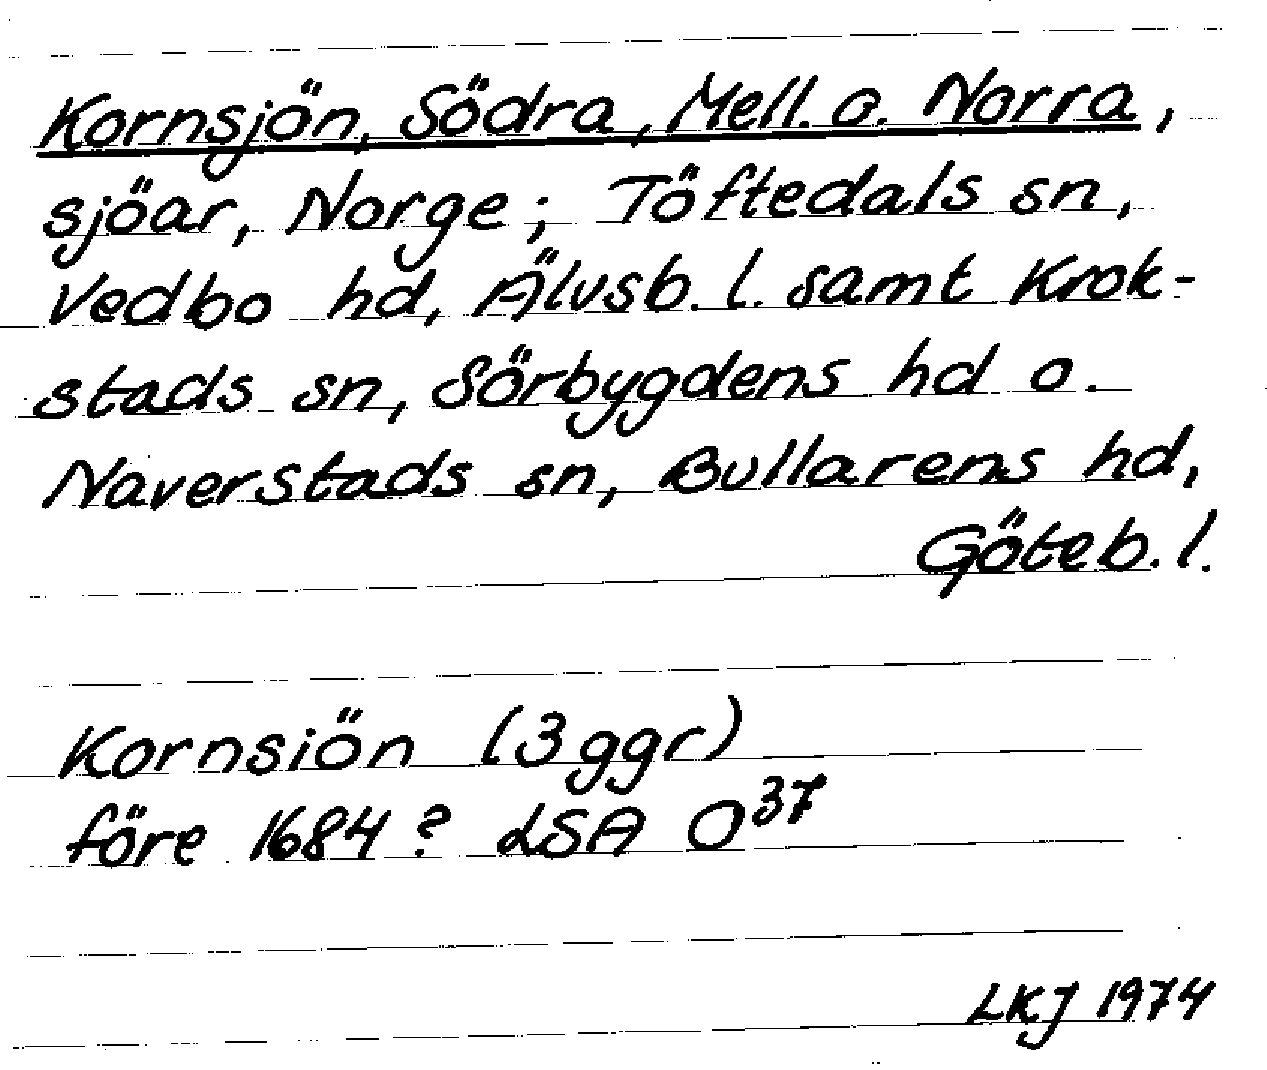 Kornsjön, Södra, Mell. o. Norra,
sjöar, Norge; Töftedals sn,
Vedbo hd, Älvsb. l. samt Krok-
stads sn, Sörbygdens hd o.
Naverstads sn, Bullarens hd,
Göteb. l.
Kornsiön (3 ggr)
före 1684? LSA O37
LKJ 1974